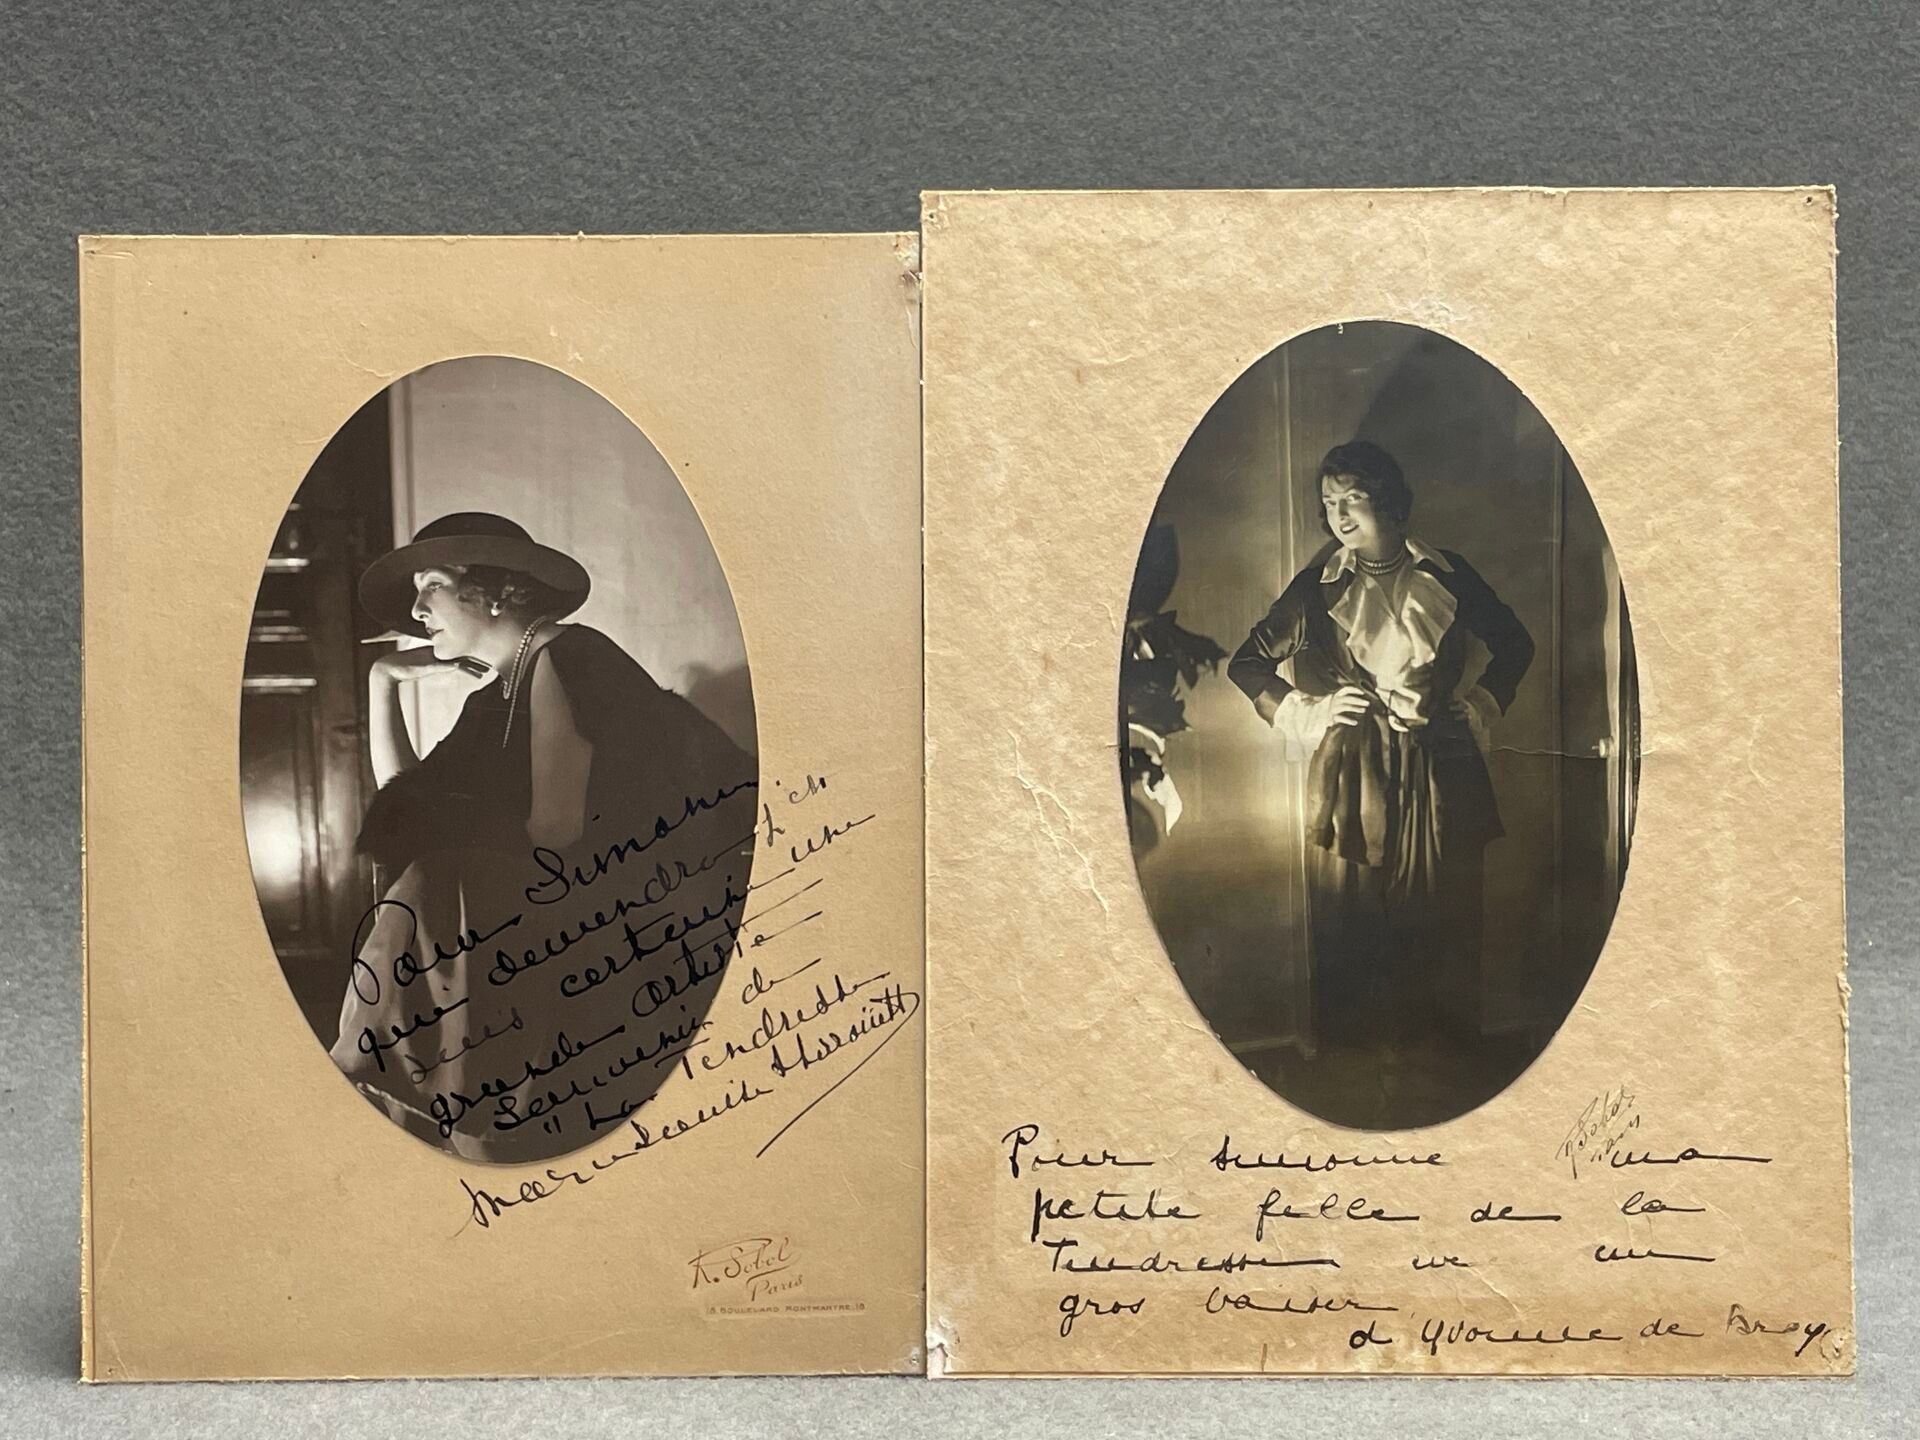 Pour Simone
qui deviendra j'en
suis certaine une
grande Artiste
Souvenir de
"La Tendresse
Marie Louise
R. Sobol
Paris
18 BOULEVARD MONTMARTRE 18
R Sobol
Paris
Pour Simonne ma
petite fille de la
Tendresse un
gros baiser
d Yvonne de Bray